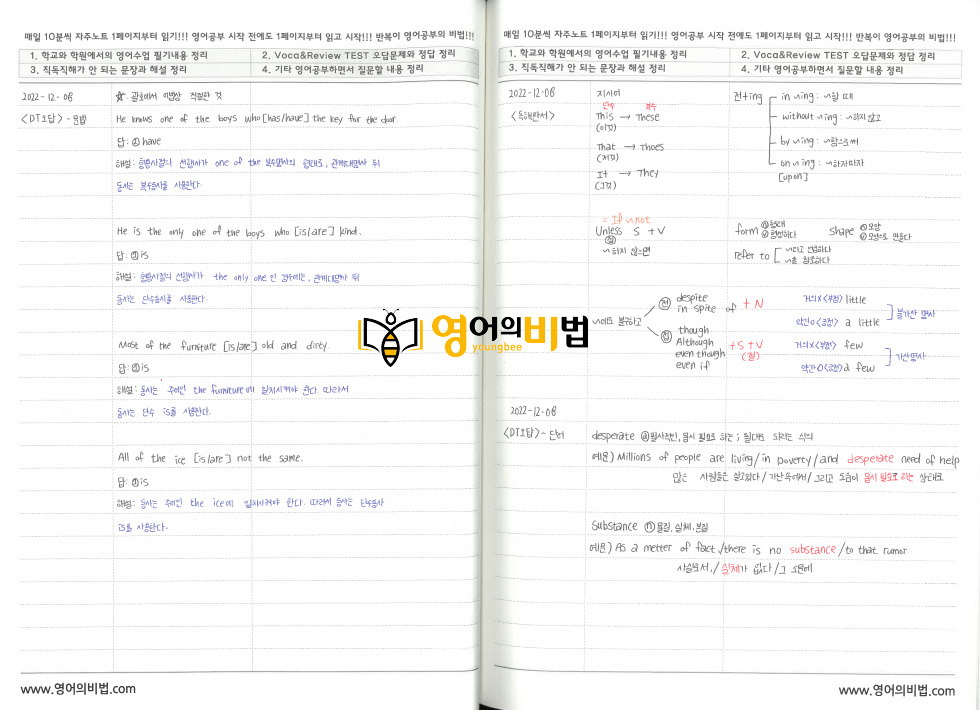 매일 10분씩 자주노트 1페이지부터 읽기!!! 영어공부 시작 전에도 1페이지부터 읽고 시작!!! 반복이 영어공부의 비법!!!
1. 학교와 학원에서의 영어수업 필기내용 정리
2. Voca&Review TEST 오답문제와 정답 정리
3. 직독직해가 안 되는 문장과 해설 정리
4. 기타 영어공부하면서 질문할 내용 정리
2022-12-08
☆. 괄호에서 어법상 적절한 것
<DT오답> - 문법
He knows one of the boys who [has/have] the key for the door.
답: ② have
해설: 형용사절의 선행사가 one of the 복수명사의 형태로, 관계대명사 뒤
동사는 복수동사를 사용한다.
He is the only one of the boys who [is/are] kind.
답: ① is
해설: 형용사절의 선행사가 the only one 인 경우에는, 관계대명사 뒤
동사는 단수동사를 사용한다.
Most of the furniture [is/are] old and dirty.
답: ① is
해설: 동사는 주어인 the furniture에 일치시켜야 한다. 따라서
동사는 단수 is를 사용한다.
All of the ice [is/are] not the same.
답: ① is
해설: 동사는 주어인 the ice에 일치시켜야 한다. 따라서 동사는 단수동사
is를 사용한다.
www.영어의비법.com
영어의비법
youngbee
매일 10분씩 자주노트 1페이지부터 읽기!!! 영어공부 시작 전에도 1페이지부터 읽고 시작!!! 반복이 영어공부의 비법!!!
1. 학교와 학원에서의 영어수업 필기내용 정리
2. Voca&Review TEST 오답문제와 정답 정리
3. 직독직해가 안 되는 문장과 해설 정리
4. 기타 영어공부하면서 질문할 내용 정리
2022-12-08
<독해판서>
지시어
단수 복수
This → These
(이것)
That → Thoes
(저것)
It → They
(그것)
전+ing
in ~ing : ~할 때
without ~ing : ~하지 않고
by ~ing : ~함으로써
on ~ing : ~하자마자
[upon]
= If ~ not
Unless S + V
㉠
~하지 않으면
form ⓝ형태
ⓥ형성하다
shape ⓝ모양
ⓥ모양으로 만들다
refer to ~라고 언급하다
~를 참조하다
~에도 불구하고
㉠ despite
in spite of + N
though
Although
even though
even if
+ S + V
(절)
거의X<부정> little
약간O<긍정> a little
불가산 명사
거의X<부정> few
약간O<긍정> a few
가산명사
2022-12-08
<DT오답> - 단어
desperate ⓐ필사적인, 몹시 필요로 하는 ; 필다로 되라는 식의
예문) Millions of people are living/in poverty/and desperate need of help
많은 사람들은 살고있다/가난속에서/그리고 도움이 몹시 필요로 하는 상태로
Substance ⓝ 물질, 실체, 본질
예문) As a metter of fact,/there is no substance/to that rumor.
사실로서,/실체가 없다/그 소문에
www.영어의비법.com